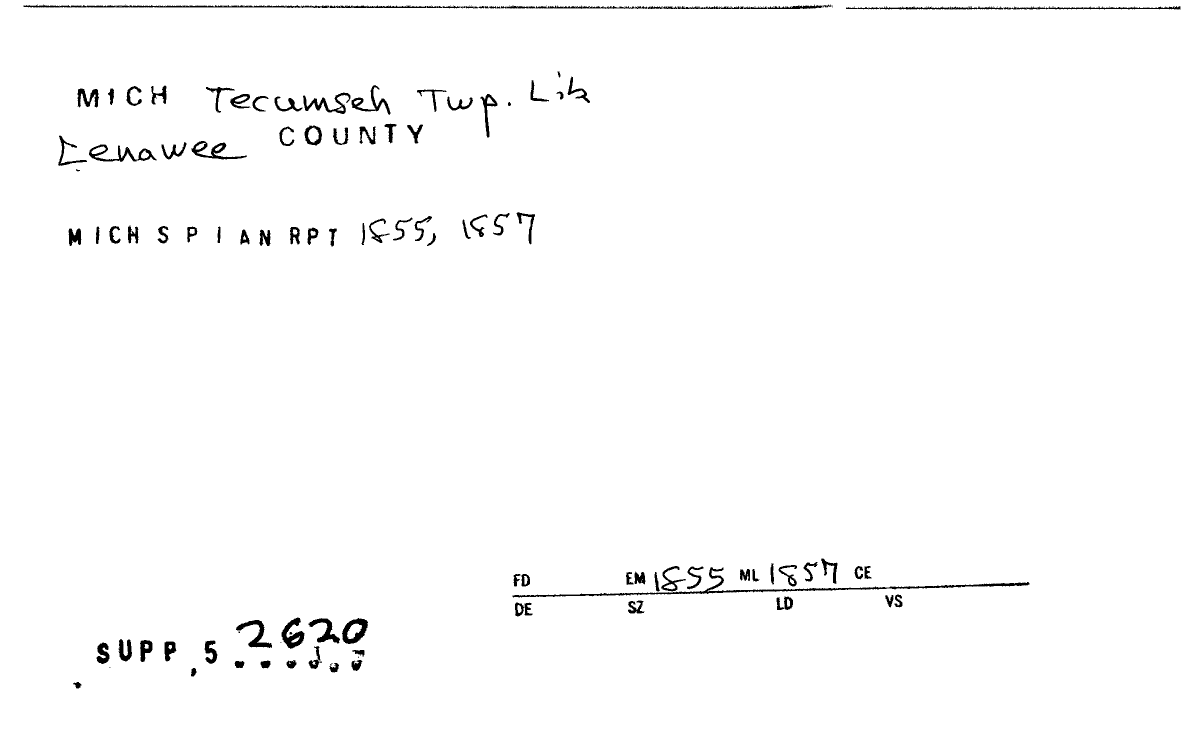 MICH Tecumseh Twp. Lib
Lenawee COUNTY
MICH S P I AN RPT 1855, 1857
FD EM 1855 ML 1857 CE
DE SZ LD VS
SUPP, 5 2620